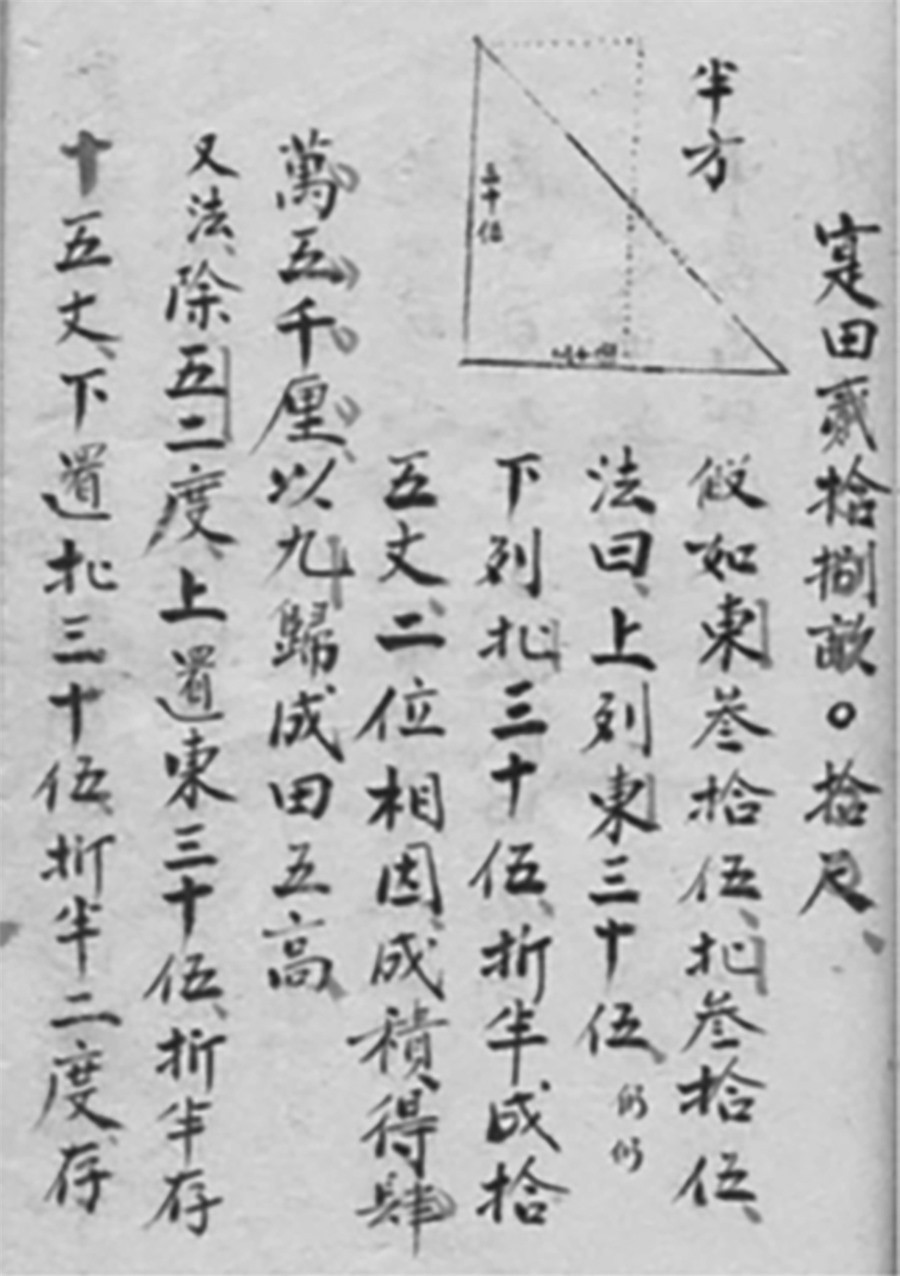 寔田貳拾捌畝〇拾尺
半方
五十伍
假如東叄拾伍北叄拾伍
法曰上列東三十伍
下列北三十伍折半成拾
五丈二位相因成積得肆
萬五千厘以九歸成田五高
又法除五二度上置東三十伍折半存
十五丈下置北三十伍折半二度存